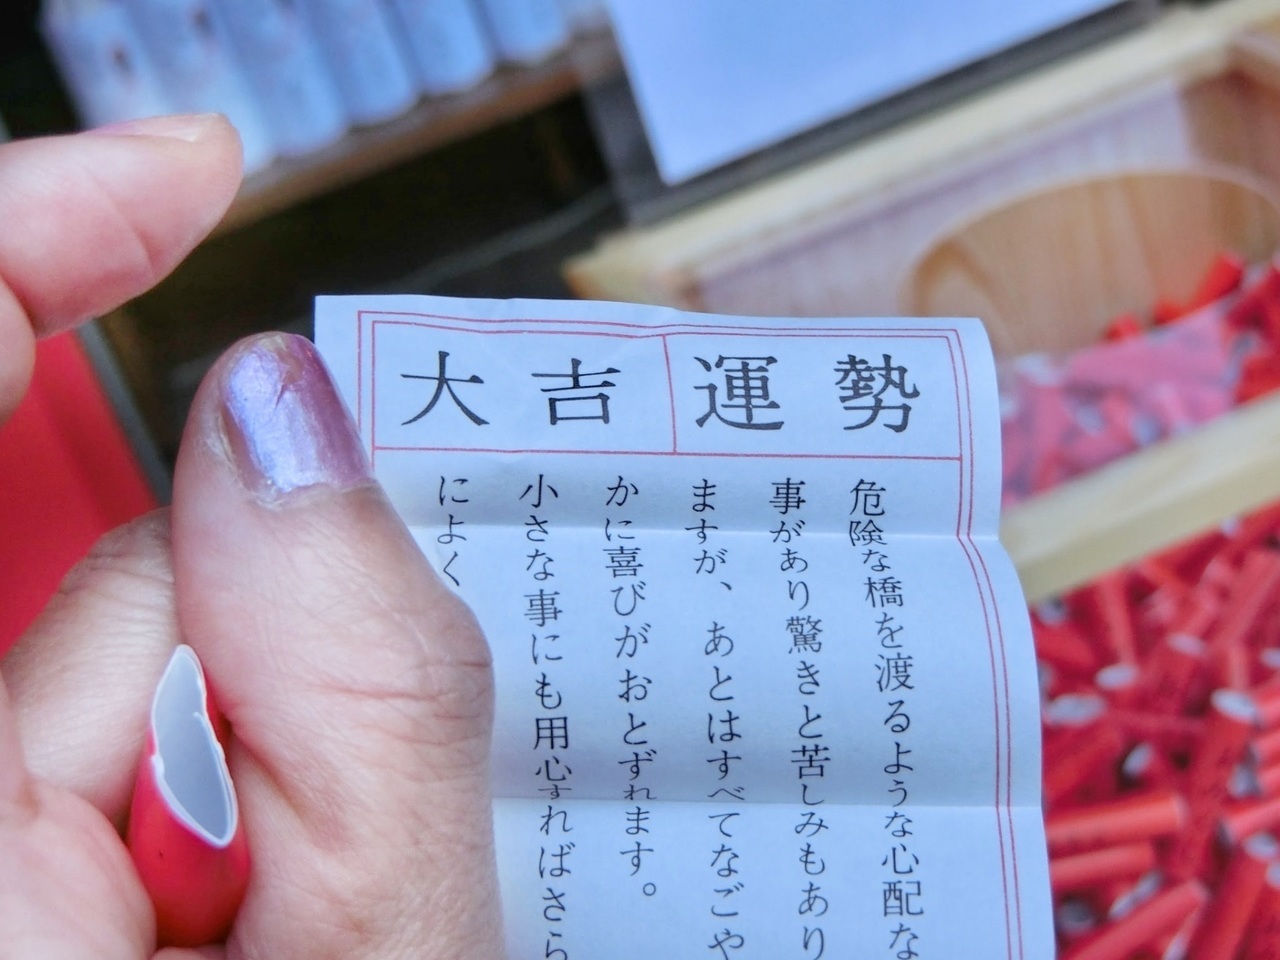 運勢
大吉
危険な橋を渡るような心配な
事があり驚きと苦しみもあり
ますが、あとはすべてなごや
かに喜びがおとずれます。
小さな事にも用心すればさら
によく